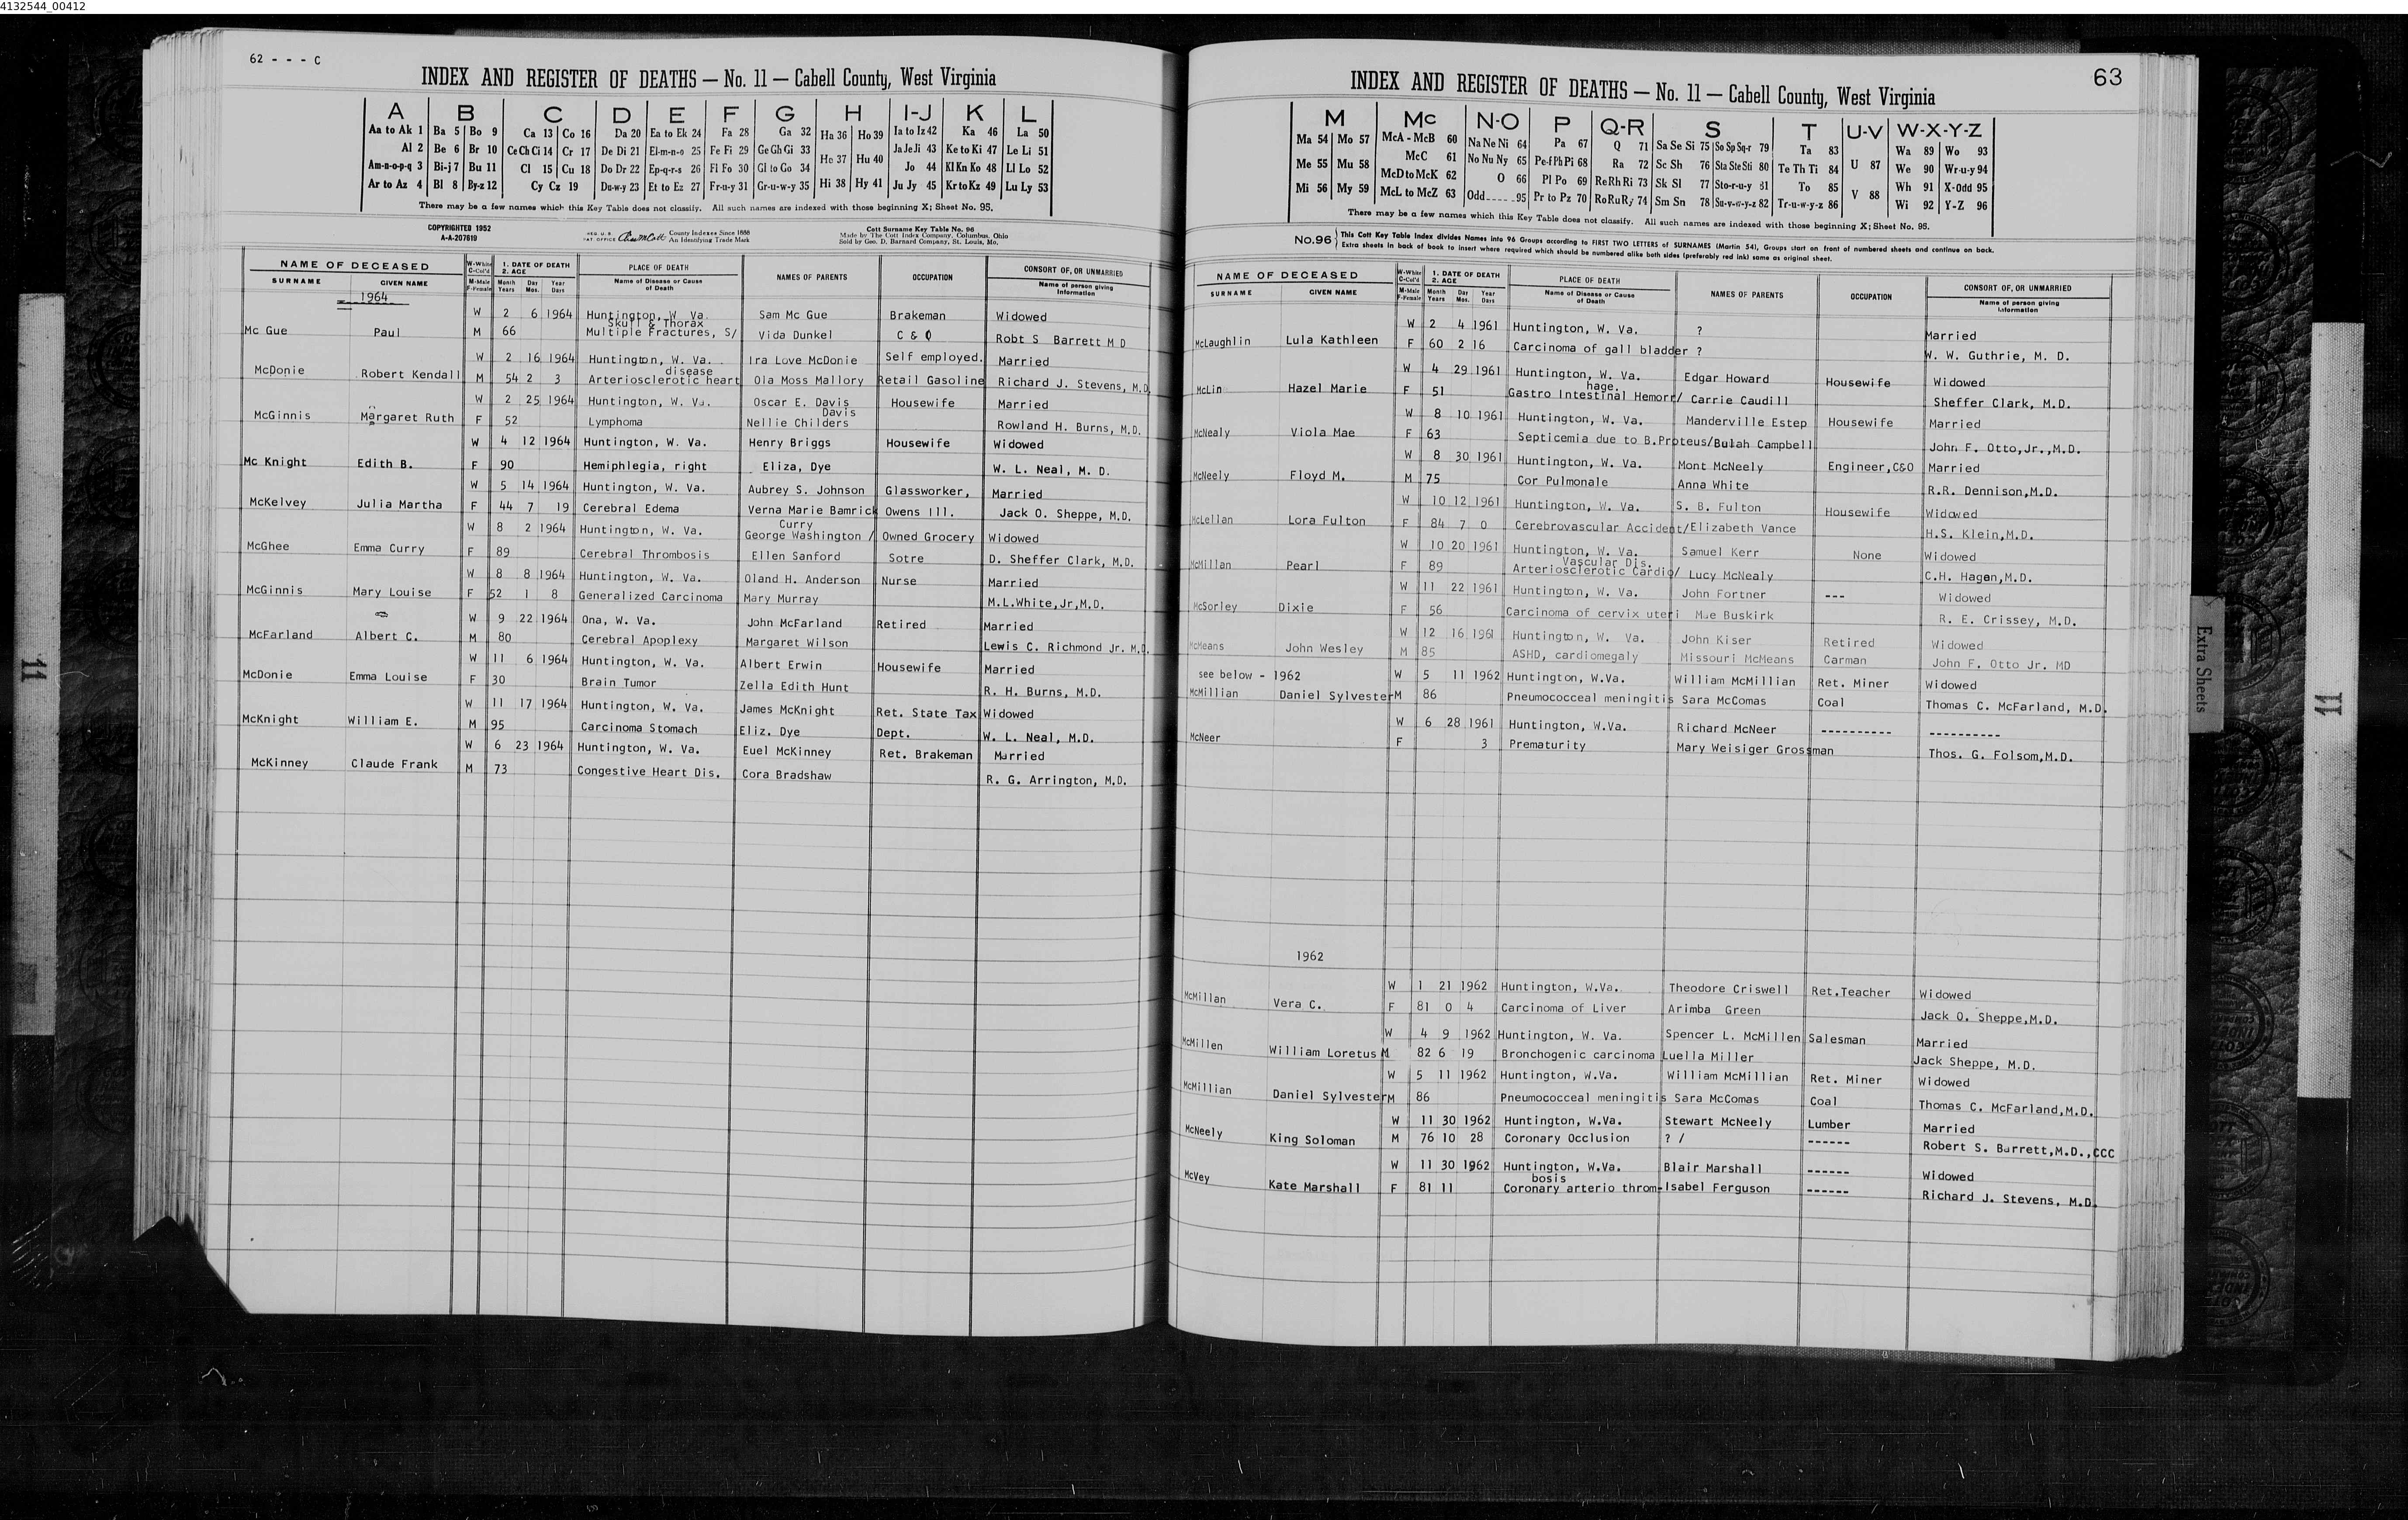 4132544_00412
62 - - - C
INDEX AND REGISTER OF DEATHS — No. 11 — Cabell County, West Virginia
A B C D E F G H I-J K L
Aa to Ak 1 Ba 5 Bo 9 Ca 13 Co 16 Da 20 Ea to Ek 24 Fa 28 Ga 32 Ha 36 Ho 39 Ia to Iz 42 Ka 46 La 50
Al 2 Be 6 Br 10 Ce Ch Ci 14 Cr 17 De Di 21 El-m-n-o 25 Fe Fi 29 Ge Gh Gi 33 He 37 Hu 40 Ja Je Ji 43 Ke to Ki 47 Le Li 51
Am-n-o-p-q 3 Bi-j 7 Bu 11 Cl 15 Cu 18 Do Dr 22 Ep-q-r-s 26 Fl Fo 30 Gl to Go 34 Jo 44 Kl Kn Ko 48 Ll Lo 52
Ar to Az 4 Bl 8 By-z 12 Cy Cz 19 Du-w-y 23 Et to Ez 27 Fr-u-y 31 Gr-u-w-y 35 Hi 38 Hy 41 Ju Jy 45 Kr to Kz 49 Lu Ly 53
There may be a few names which this Key Table does not classify. All such names are indexed with those beginning X; Sheet No. 95.
COPYRIGHTED 1952
A-A-207619
REG. U. S. PAT. OFFICE County Indexes Since 1888
An Identifying Trade Mark
Cott Surname Key Table No. 96
Made by The Cott Index Company, Columbus, Ohio
Sold by Geo. D. Barnard Company, St. Louis, Mo.
NAME OF DECEASED W-White C-Col'd 1. DATE OF DEATH 2. AGE PLACE OF DEATH NAMES OF PARENTS OCCUPATION CONSORT OF, OR UNMARRIED
SURNAME GIVEN NAME M-Male F-Female Month Years Day Mos. Year Days Name of Disease or Cause of Death Name of person giving Information
1964
W 2 6 1964 Huntington, W Va. Sam Mc Gue Brakeman Widowed
Skull & Thorax
Mc Gue Paul M 66 Multiple Fractures, S/ Vida Dunkel C & O Robt S Barrett M D
W 2 16 1964 Huntington, W. Va. Ira Love McDonie Self employed. Married
disease
McDonie Robert Kendall M 54 2 3 Arteriosclerotic heart Ola Moss Mallory Retail Gasoline Richard J. Stevens, M.D.
W 2 25 1964 Huntington, W. Va. Oscar E. Davis Housewife Married
Davis
McGinnis Margaret Ruth F 52 Lymphoma Nellie Childers Rowland H. Burns, M.D.
W 4 12 1964 Huntington, W. Va. Henry Briggs Housewife Widowed
Mc Knight Edith B. F 90 Hemiphlegia, right Eliza, Dye W. L. Neal, M. D.
W 5 14 1964 Huntington, W. Va. Aubrey S. Johnson Glassworker, Married
McKelvey Julia Martha F 44 7 19 Cerebral Edema Verna Marie Bamrick Owens Ill. Jack O. Sheppe, M.D.
Curry
W 8 2 1964 Huntington, W. Va. George Washington / Owned Grocery Widowed
McGhee Emma Curry F 89 Cerebral Thrombosis Ellen Sanford Sotre D. Sheffer Clark, M.D.
W 8 8 1964 Huntington, W. Va. Oland H. Anderson Nurse Married
McGinnis Mary Louise F 52 1 8 Generalized Carcinoma Mary Murray M.L.White,Jr,M.D.
W 9 22 1964 Ona, W. Va. John McFarland Retired Married
McFarland Albert C. M 80 Cerebral Apoplexy Margaret Wilson Lewis C. Richmond Jr. M.D.
W 11 6 1964 Huntington, W. Va. Albert Erwin Housewife Married
McDonie Emma Louise F 30 Brain Tumor Zella Edith Hunt R. H. Burns, M.D.
W 11 17 1964 Huntington, W. Va. James McKnight Ret. State Tax Widowed
McKnight William E. M 95 Carcinoma Stomach Eliz. Dye Dept. W. L. Neal, M.D.
W 6 23 1964 Huntington, W. Va. Euel McKinney Ret. Brakeman Married
McKinney Claude Frank M 73 Congestive Heart Dis. Cora Bradshaw R. G. Arrington, M.D.
63
INDEX AND REGISTER OF DEATHS — No. 11 — Cabell County, West Virginia
M Mc N-O P Q-R S T U-V W-X-Y-Z
Ma 54 Mo 57 McA - McB 60 Na Ne Ni 64 Pa 67 Q 71 Sa Se Si 75 So Sp Sq-r 79 Ta 83 Wa 89 Wo 93
Me 55 Mu 58 McC 61 No Nu Ny 65 Pe-f Ph Pi 68 Ra 72 Sc Sh 76 Sta Ste Sti 80 Te Th Ti 84 U 87 We 90 Wr-u-y 94
McD to McK 62 O 66 Pl Po 69 Re Rh Ri 73 Sk Sl 77 Sto-r-u-y 81 To 85 Wh 91 X-Odd 95
Mi 56 My 59 McL to McZ 63 Odd 95 Pr to Pz 70 Ro Ru Ry 74 Sm Sn 78 Su-v-w-y-z 82 Tr-u-w-y-z 86 V 88 Wi 92 Y-Z 96
There may be a few names which this Key Table does not classify. All such names are indexed with those beginning X; Sheet No. 95.
No.96 This Cott Key Table Index divides Names into 96 Groups according to FIRST TWO LETTERS of SURNAMES (Martin 54), Groups start on front of numbered sheets and continue on back.
Extra sheets in back of book to insert where required which should be numbered alike both sides (preferably red ink) same as original sheet.
NAME OF DECEASED W-White C-Col'd 1. DATE OF DEATH 2. AGE PLACE OF DEATH NAMES OF PARENTS OCCUPATION CONSORT OF, OR UNMARRIED
SURNAME GIVEN NAME M-Male F-Female Month Years Day Mos. Year Days Name of Disease or Cause of Death Name of person giving Information
W 2 4 1961 Huntington, W. Va. ? Married
McLaughlin Lula Kathleen F 60 2 16 Carcinoma of gall bladder ? W. W. Guthrie, M. D.
W 4 29 1961 Huntington, W. Va. Edgar Howard Housewife Widowed
hage.
McLin Hazel Marie F 51 Gastro Intestinal Hemorr/ Carrie Caudill Sheffer Clark, M.D.
W 8 10 1961 Huntington, W. Va. Manderville Estep Housewife Married
McNealy Viola Mae F 63 Septicemia due to B.Proteus/Bulah Campbell John F. Otto,Jr.,M.D.
W 8 30 1961 Huntington, W. Va. Mont McNeely Engineer,C&O Married
McNeely Floyd M. M 75 Cor Pulmonale Anna White R.R. Dennison,M.D.
W 10 12 1961 Huntington, W. Va. S. B. Fulton Housewife Widowed
McLellan Lora Fulton F 84 7 0 Cerebrovascular Accident/Elizabeth Vance H.S. Klein,M.D.
W 10 20 1961 Huntington, W. Va. Samuel Kerr None Widowed
Vascular Dis.
McMillan Pearl F 89 Arteriosclerotic Cardio/ Lucy McNealy C.H. Hagen,M.D.
W 11 22 1961 Huntington, W. Va. John Fortner --- Widowed
McSorley Dixie F 56 Carcinoma of cervix uteri Mae Buskirk R. E. Crissey, M.D.
W 12 16 1961 Huntington, W. Va. John Kiser Retired Widowed
McMeans John Wesley M 85 ASHD, cardiomegaly Missouri McMeans Carman John F. Otto Jr. MD
see below - 1962 W 5 11 1962 Huntington, W.Va. William McMillian Ret. Miner Widowed
McMillian Daniel Sylvester M 86 Pneumococceal meningitis Sara McComas Coal Thomas C. McFarland, M.D.
W 6 28 1961 Huntington, W.Va. Richard McNeer ---------- ----------
McNeer F 3 Prematurity Mary Weisiger Grossman Thos. G. Folsom,M.D.
1962
W 1 21 1962 Huntington, W.Va. Theodore Criswell Ret.Teacher Widowed
McMillan Vera C. F 81 0 4 Carcinoma of Liver Arimba Green Jack O. Sheppe,M.D.
W 4 9 1962 Huntington, W. Va. Spencer L. McMillen Salesman Married
McMillen William Loretus M 82 6 19 Bronchogenic carcinoma Luella Miller Jack Sheppe, M.D.
W 5 11 1962 Huntington, W.Va. William McMillian Ret. Miner Widowed
McMillian Daniel Sylvester M 86 Pneumococceal meningitis Sara McComas Coal Thomas C. McFarland,M.D.
W 11 30 1962 Huntington, W.Va. Stewart McNeely Lumber Married
McNeely King Soloman M 76 10 28 Coronary Occlusion ? / ------ Robert S. Barrett,M.D.,CCC
W 11 30 1962 Huntington, W.Va. Blair Marshall ------ Widowed
bosis
McVey Kate Marshall F 81 11 Coronary arterio throm-Isabel Ferguson ------ Richard J. Stevens, M.D.
Extra Sheets
11
11